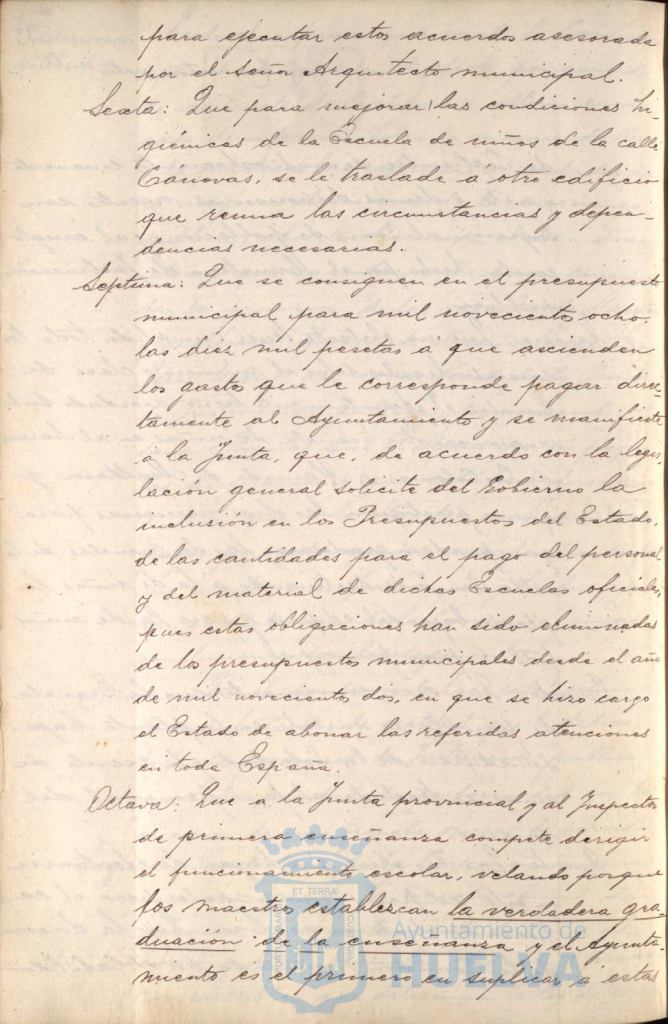 para ejecutar estos acuerdos asesorada
por el Señor Arquitecto municipal.
Sexta: Que para mejorar las condiciones hi-
giénicas de la Escuela de niños de la calle
Cánovas, se le traslade á otro edificio
que reuna las circunstancias y depen-
dencias necesarias.
Septima: Que se consignen en el presupuesto
municipal para mil novecientos ocho,
las diez mil pesetas á que ascienden
los gastos que le corresponde pagar direc-
tamente al Ayuntamiento y se manifieste
á la Junta, que, de acuerdo con la legis-
lación general solicite del Gobierno la
inclusión en los Presupuestos del Estado,
de las cantidades para el pago del personal
y del material de dichas Escuelas oficiales,
pues estas obligaciones han sido eliminadas
de los presupuestos municipales desde el año
de mil novecientos dos, en que se hizo cargo
el Estado de abonar las referidas atenciones
en toda España.
Octava: Que a la Junta provincial y al Inspector
de primera enseñanza compete dirigir
el funcionamiento escolar, velando porque
los maestros establezcan la verdadera gra-
duación de la enseñanza y el Ayunta-
miento es el primero en suplicar á estas
ET TERRÆ
Ayuntamiento de
HUELVA